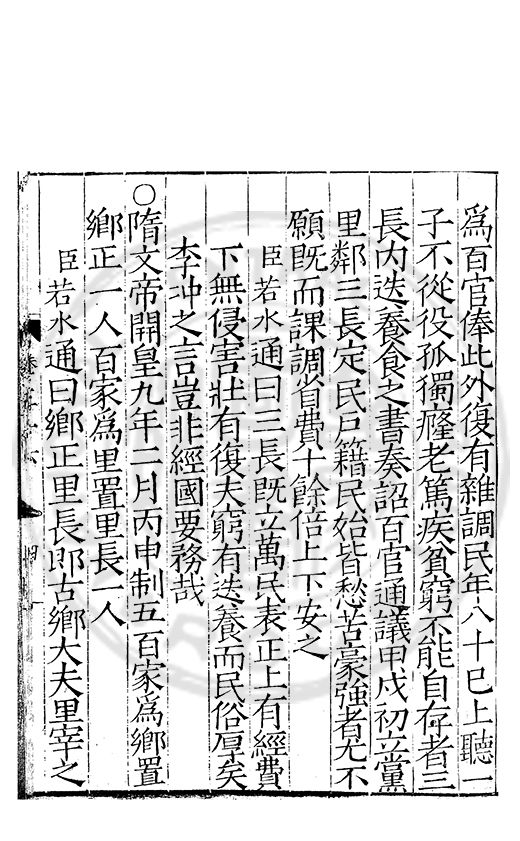 為百官俸此外復有雜調民年八十已上聽一
子不從役孤獨癃老篤疾貧窮不能自存者三
長內迭養食之書奏詔百官通議甲戌初立黨
里鄰三長定民戶籍民始皆愁苦豪强者尤不
願既而課調省費十餘倍上下安之
臣若水通曰三長既立萬民表正上有經費
下無侵害壯有復夫窮有迭養而民俗厚矣
李冲之言豈非經國要務哉
○隋文帝開皇九年二月丙申制五百家為鄉置
鄉正一人百家為里置里長一人
臣若水通曰鄉正里長即古鄉大夫里宰之